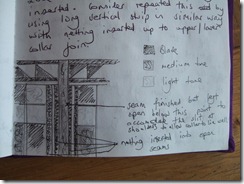 imparted. Consider repeated this idea by
using long vertical strip in similar way
with netting inserted up to upper/lower
collar join.
Base
medium tone
light tone
seam finished but left
open below this point to
accomodate the slit at
shoulders
netting inserted into open
seams